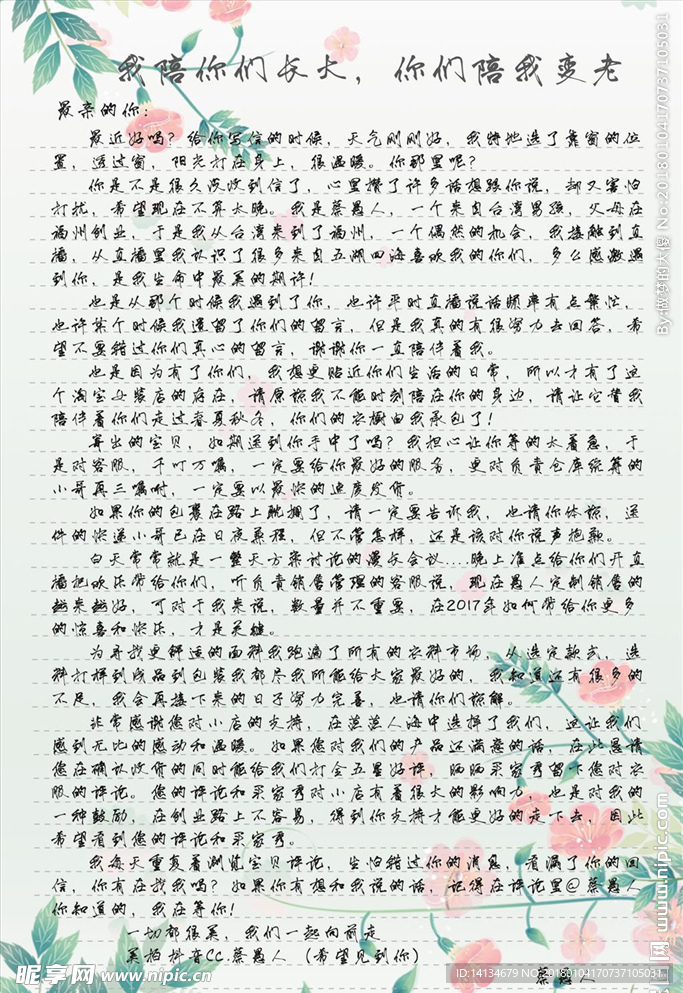 我陪你们长大，你们陪我变老
最亲的你：
最近好吗？给你写信的时候，天气刚刚好，我特地选了靠窗的位
置，透过窗，阳光打在身上，很温暖。你那里呢？
你是不是很久没收到信了，心里攒了许多话想跟你说，却又害怕
打扰，希望现在不算太晚。我是蔡愚人，一个来自台湾男孩，父母在
福州创业，于是我从台湾来到了福州，一个偶然的机会，我接触到直
播，从直播里我认识了很多来自五湖四海喜欢我的你们，多么感激遇
到你，是我生命中最美的期许！
也是从那个时候我遇到了你，也许平时直播说话频率有点繁忙，
也许某个时候我遗留了你们的留言，但是我真的有很努力去回答，希
望不要错过你们真心的留言，谢谢你一直陪伴着我。
也是因为有了你们，我想更贴近你们生活的日常，所以才有了这
个淘宝女装店的存在，请原谅我不能时刻陪在你的身边，请让它替我
陪伴着你们走过春夏秋冬，你们的衣橱由我承包了！
寄出的宝贝，如期送到你手中了吗？我担心让你等的太着急，于
是对客服，千叮万嘱，一定要给你最好的服务，更对负责仓库综筹的
小哥再三嘱咐，一定要以最快的速度发货。
如果你的包裹在路上耽搁了，请一定要告诉我，也请你体谅，送
件的快递小哥已在日夜兼程，但不管怎样，还是该对你说声抱歉。
白天常常就是一整天方案讨论的漫长会议....晚上准点给你们开直
播把欢乐带给你们，听负责销售管理的客服说，现在愚人定制销售的
越来越好，可对于我来说，数量并不重要，在2017年如何带给你更多
的惊喜和快乐，才是关键。
为寻找更舒适的面料我跑遍了所有的衣料市场，从选定款式，选
料打样到成品到包装我都尽我所能给大家最好的，我知道还有很多的
不足，我会再接下来的日子努力完善，也请你们谅解。
非常感谢您对小店的支持，在茫茫人海中选择了我们，这让我们
感到无比的感动和温暖。如果您对我们的产品还满意的话，在此恳请
您在确认收货的同时能给我们打全五星好评，晒晒买家秀留下您对衣
服的评论。您的评论和买家秀对小店有着很大的影响力，也是对我的
一种鼓励，在创业路上不容易，得到你支持才能更好的走下去，因此
希望看到您的评论和买家秀。
我每天重复着浏览宝贝评论，生怕错过你的消息，看漏了你的回
信，你有在找我吗？如果你有想和我说的话，记得在评论里@蔡愚人
你知道的，我在等你！
一切都很美，我们一起向前走
美拍抖音CC蔡愚人（希望见到你）
蔡愚人
昵享网 www.nipic.cn
ID:14134679 NO:20180104170737105031
By:做梦的大傻 No:20180104170737105031
www.nipic.com